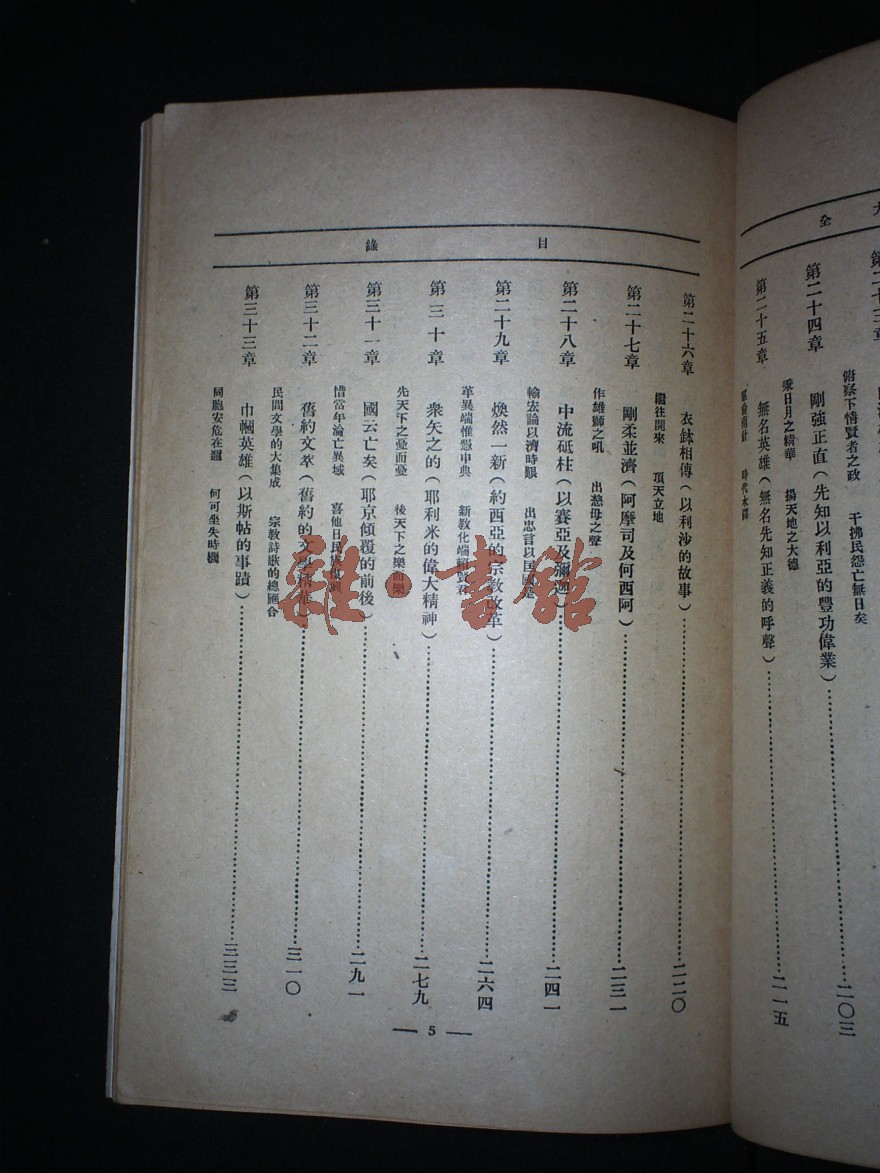 全
第二十四章 剛強正直(先知以利亞的豐功偉業)……二〇三
俯察下情賢者之政 干拂民怨亡無日矣
第二十五章 無名英雄(無名先知正義的呼聲)……二一五
秉日月之精華 揚天地之大德
目錄
第二十六章 衣鉢相傳(以利沙的故事)……二二〇
繼往開來 頂天立地
第二十七章 剛柔並濟(阿摩司及何西阿)……二三一
作雄獅之吼 出慈母之聲
第二十八章 中流砥柱(以賽亞及彌迦)……二四一
輸宏論以濟時艱 出忠言以匡國是
第二十九章 煥然一新(約西亞的宗教改革)……二六四
革異端惟憑申典 新教化端賴賢君
第三十章 衆矢之的(耶利米的偉大精神)……二七九
先天下之憂而憂 後天下之樂而樂
第三十一章 國云亡矣(耶京傾覆的前後)……二九一
惜當年淪亡異域 喜他日民族復興
第三十二章 舊約文萃(舊約的文學精華)……三一〇
民間文學的大集成 宗教詩歌的總匯合
第三十三章 巾幗英雄(以斯帖的事蹟)……三三三
同胞安危在邇 何可坐失時機
— 5 —
雜·書館